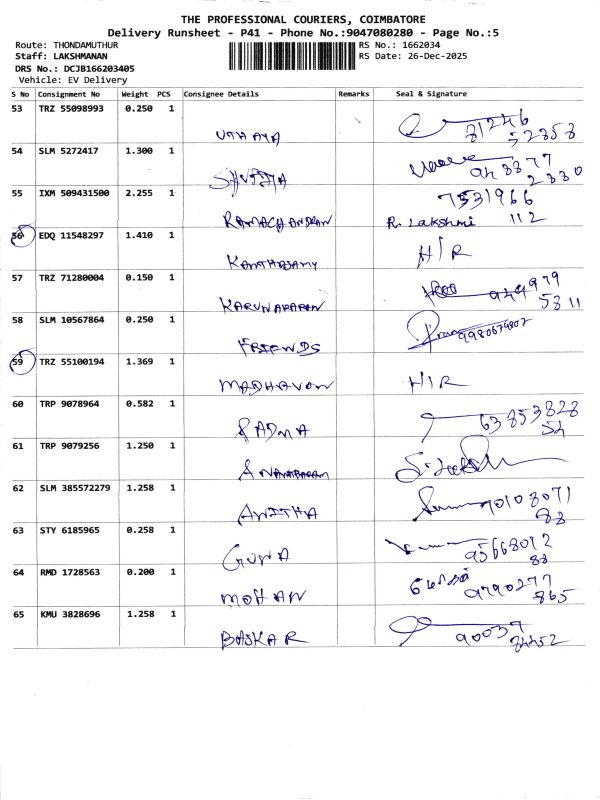 THE PROFESSIONAL COURIERS, COIMBATORE
Delivery Runsheet - P41 - Phone No.:9047080280 - Page No.:5
Route: THONDAMUTHUR RS No.: 1662034
Staff: LAKSHMANAN RS Date: 26-Dec-2025
DRS No.: DCJB166203405
Vehicle: EV Delivery
S No Consignment No Weight PCS Consignee Details Remarks Seal & Signature
53 TRZ 55098993 0.250 1 UTHAYA 81246
52858
54 SLM 5272417 1.300 1 948877
2330
55 IXM 509431500 2.255 1 RAMACHANDRAN R. Lakshmi 7531966
112
56 EDQ 11548297 1.410 1 KANTHASAMY H/R
57 TRZ 71280004 0.150 1 KARUNAKARAN 949979
5311
58 SLM 10567864 0.250 1 FRIENDS 9980674802
59 TRZ 55100194 1.369 1 MADHAVON H/R
60 TRP 9078964 0.582 1 PADMA 63853828
54
61 TRP 9079256 1.250 1
62 SLM 385572279 1.258 1 ANITHA 90108071
88
63 STY 6185965 0.258 1 GUNA 95668012
88
64 RMD 1728563 0.200 1 MOHAN 9790277
865
65 KMU 3828696 1.258 1 BASKAR 90037
84452